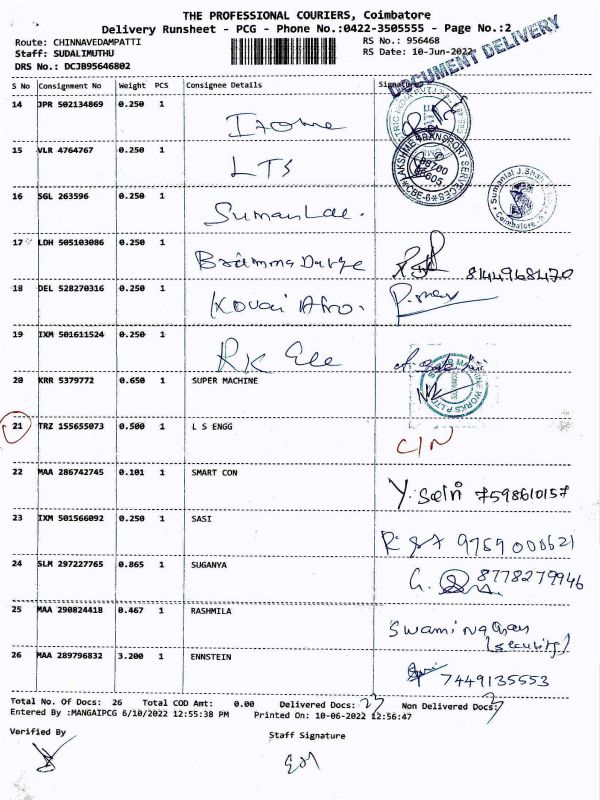 THE PROFESSIONAL COURIERS, Coimbatore
Delivery Runsheet - PCG - Phone No.:0422-3505555 - Page No.:2
Route: CHINNAVEDAMPATTI
Staff: SUDALIMUTHU
DRS No.: DCJB95646802
RS No.: 956468
RS Date: 10-Jun-2022
DOCUMENT DELIVERY
S No Consignment No Weight PCS Consignee Details Signature
14 JPR 502134869 0.250 1
15 VLR 4764767 0.250 1 LTS
LAKSHME TRANSPORT SERVICES
CBE-6
16 SGL 263596 0.250 1
Sumanlal J.Shah
Coimbatore
17 LDH 505103086 0.250 1 8144968470
18 DEL 528270316 0.250 1 Kovai Afro.
19 IXM 501611524 0.250 1 RK Ele
20 KRR 5379772 0.650 1 SUPER MACHINE
WORKS P LTD
21 TRZ 155655073 0.500 1 L S ENGG C/N
22 MAA 286742745 0.101 1 SMART CON Y. Selvi 7598610157
23 IXM 501566092 0.250 1 SASI
24 SLM 297227765 0.865 1 SUGANYA G. 8778279946
25 MAA 290824418 0.467 1 RASHMILA Swaminathan
(security)
26 MAA 289796832 3.200 1 ENNSTEIN 7449135553
Total No. Of Docs: 26 Total COD Amt: 0.00 Delivered Docs: 23 Non Delivered Docs: 3
Entered By :MANGAIPCG 6/10/2022 12:55:38 PM Printed On: 10-06-2022 12:56:47
Verified By Staff Signature